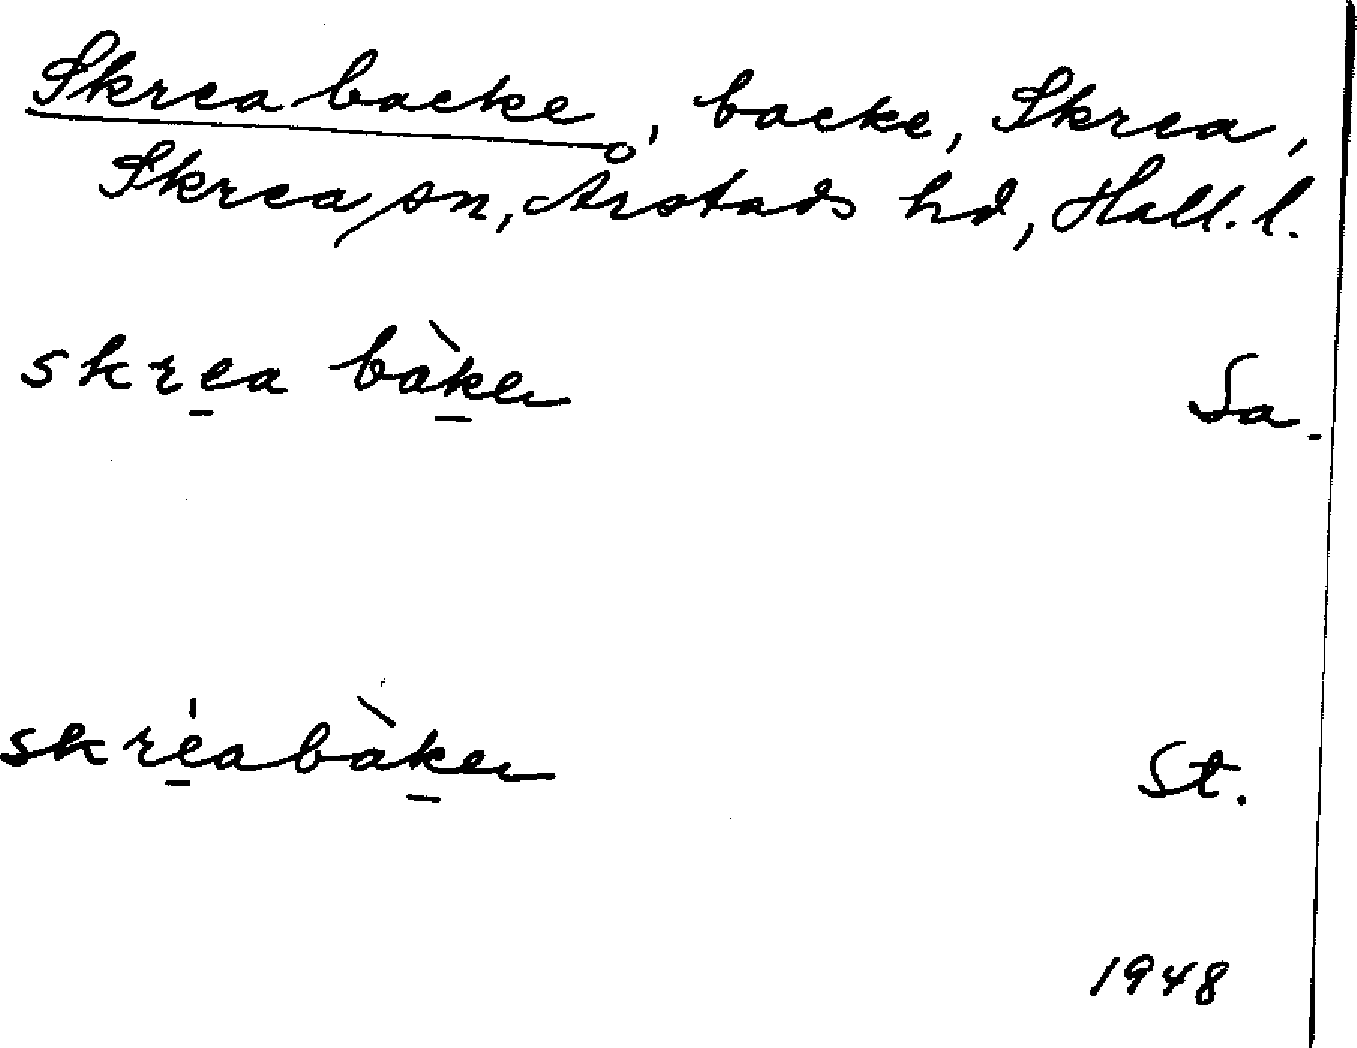 Skreabacke, backe, Skrea,
Skrea sn, Årstads hd, Hall. l.
skre̱a bàḵen Sa.
skré̱abàḵen St.
1948